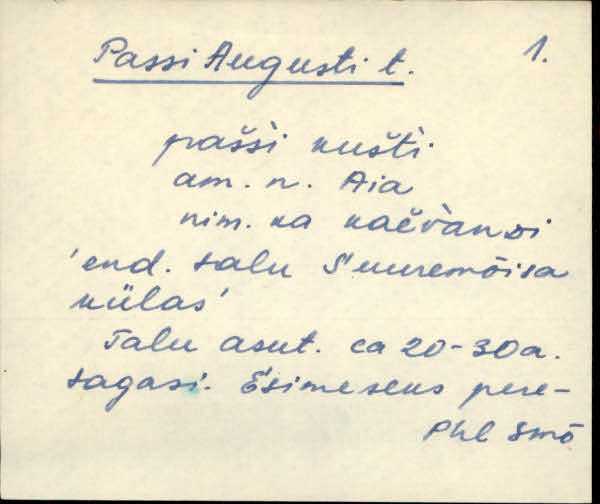 Passi Augusti t.
1.
pašši kušti
am. n. Aia
nim. ka
'end. talu Suuremõisa
külas'
Talu asut. ca 20-30a.
tagasi. Esimeseks pere-
Phl Smõ